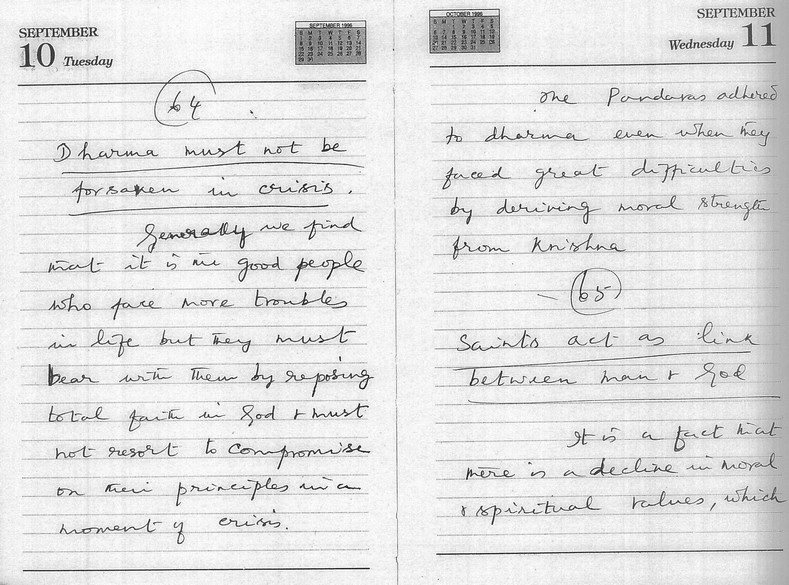 SEPTEMBER
10 Tuesday
SEPTEMBER 1996
64
Dharma must not be
forsaken in crisis.
Generally we find
that it is the good people
who face more troubles
in life but they must
bear with them by reposing
total faith in God & must
not resort to compromise
on their principles in a
moment of crisis.
OCTOBER 1996
SEPTEMBER
Wednesday 11
The Pandavas adhered
to dharma even when they
faced great difficulties
by deriving moral strength
from Krishna
65
Saints act as link
between man & God
It is a fact that
there is a decline in moral
& spiritual values, which